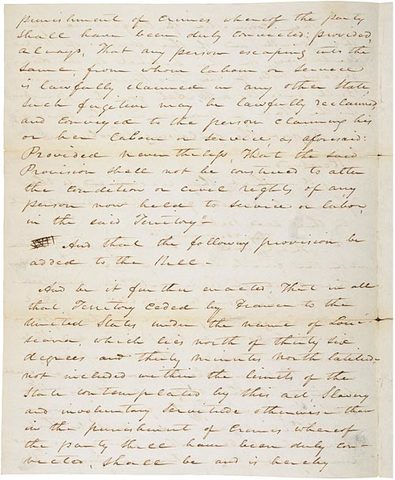 punishment of Crimes, whereof the party
shall have been duly convicted: provided,
always, That any person escaping into the
same, from whom labour or service
is lawfully claimed in any other State,
such fugitive may be lawfully reclaimed
and conveyed to the person claiming his
or her labour or service, as aforesaid:
Provided nevertheless, That the said
Provision shall not be construed to alter
the condition or civil rights of any
person now held to service or labor,
in the said Territory—
And that the following provision be
added to the Bill—
And be it further enacted, That in all
that Territory ceded by France to the
United States, under the name of Loui
siana, which lies north of thirty six
degrees and thirty minutes north latitude
not included within the limits of the
State contemplated by this act, Slavery
and involuntary servitude otherwise than
in the punishment of Crimes whereof
the party shall have been duly con-
victed, shall be and is hereby